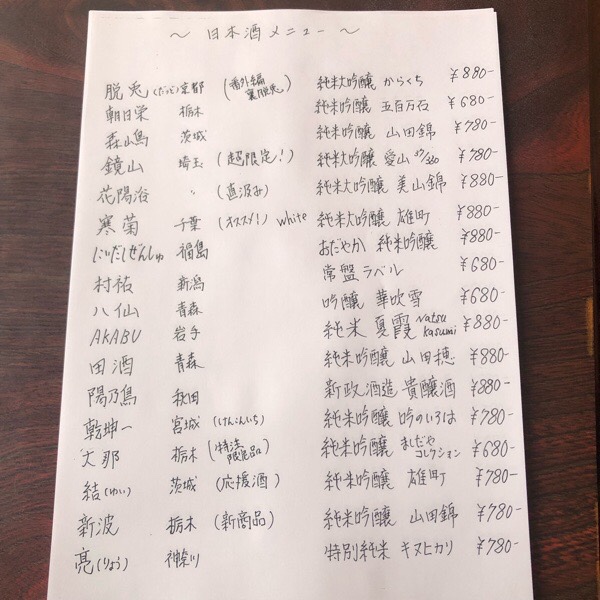 ～ 日本酒メニュー ～
脱兎(だっと) 京都 (番外編 裏脱兎) 純米大吟醸 からくち ¥880-
朝日栄 栃木 純米大吟醸 五百万石 ¥680-
森嶋 茨城 純米大吟醸 山田錦 ¥780-
鏡山 埼玉 (超限定!) 純米大吟醸 愛山 ¥780-
花陽浴 〃 (直汲み) 純米大吟醸 美山錦 ¥880-
寒菊 千葉 (オススメ!) White 純米大吟醸 雄町 ¥880-
にいだしぜんしゅ 福島 おだやか 純米吟醸 ¥880-
村祐 新潟 常盤ラベル ¥680-
八仙 青森 吟醸 華吹雪 ¥680-
AKABU 岩手 純米 夏霞 Natsu Kasumi ¥880-
田酒 青森 純米吟醸 山田穂 ¥880-
陽乃鳥 秋田 新政酒造 貴醸酒 ¥880-
乾坤一 宮城 (けんこんいち) 純米吟醸 吟のいろは ¥780-
大那 栃木 (特注 限定品) 純米吟醸 ましだや コレクション ¥680-
結(ゆい) 茨城 (応援酒) 純米吟醸 雄町 ¥780-
新波 栃木 (新商品) 純米吟醸 山田錦 ¥780-
亮(りょう) 神奈川 特別純米 キヌヒカリ ¥780-